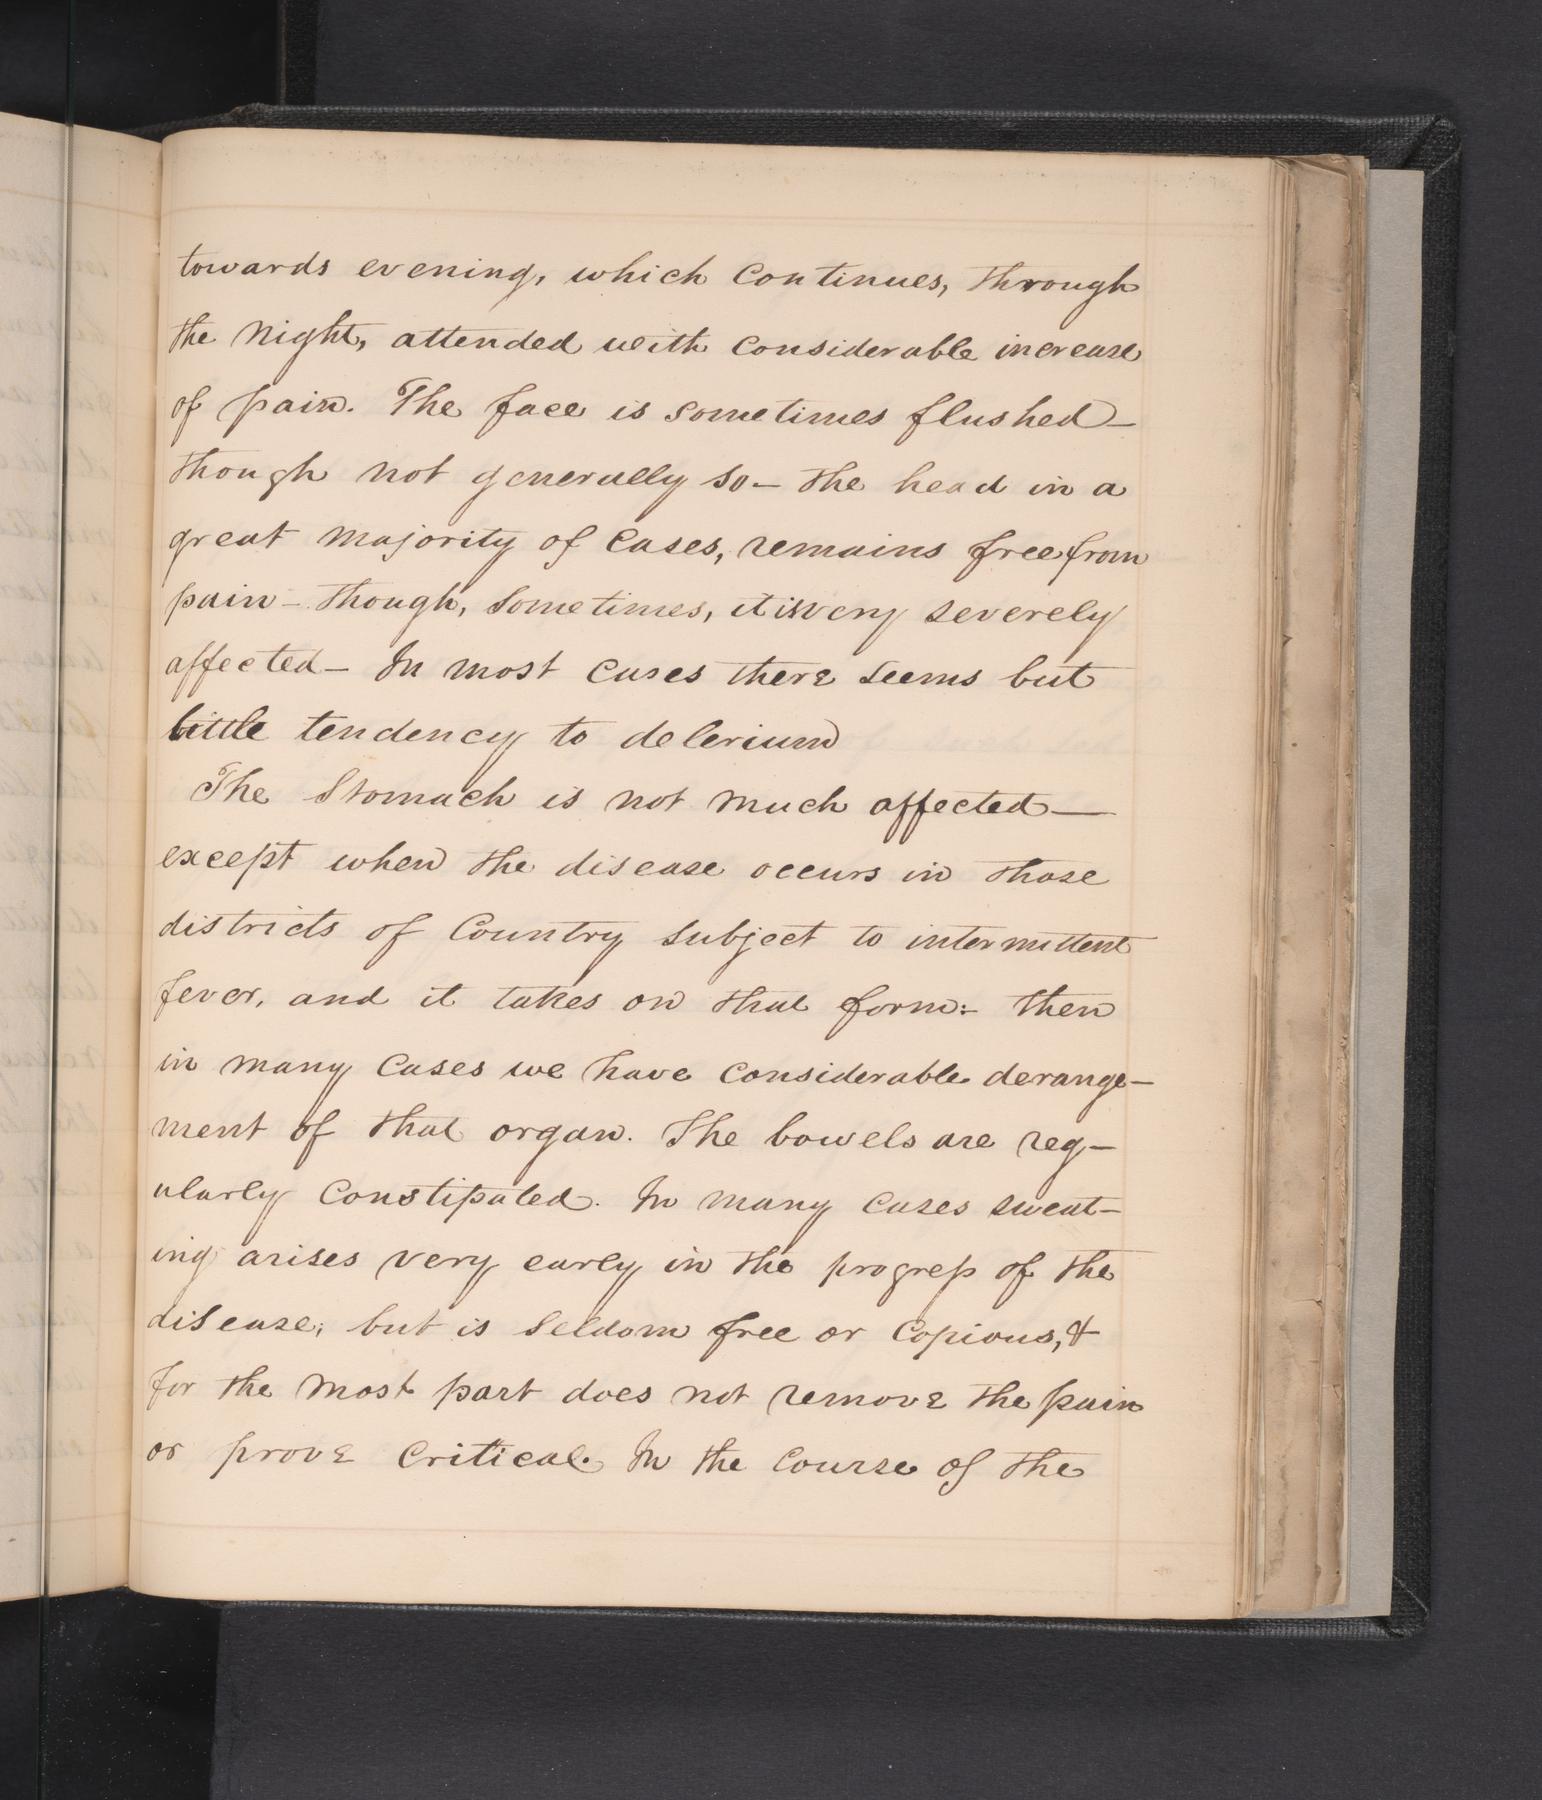 towards evening, which Continues, through
the Night, attended with Considerable increase
of pain. The face is sometimes flushed—
though not generally so— the head in a
great Majority of Cases, remains free from
pain— though, Sometimes, it is very severely
affected— In most Cases there seems but
little tendency to delerium
The Stomach is not much affected—
except when the disease occurs in those
districts of Country subject to intermittent
fever, and it takes on that form:- then
in many Cases we have Considerable derange-
ment of that organ. The bowels are reg-
ularly Constipated. In many Cases sweat-
ing arises very early in the progress of the
disease; but is Seldom free or Copious, &
for the most part does not remove the pain
or prove Critical. In the Course of the